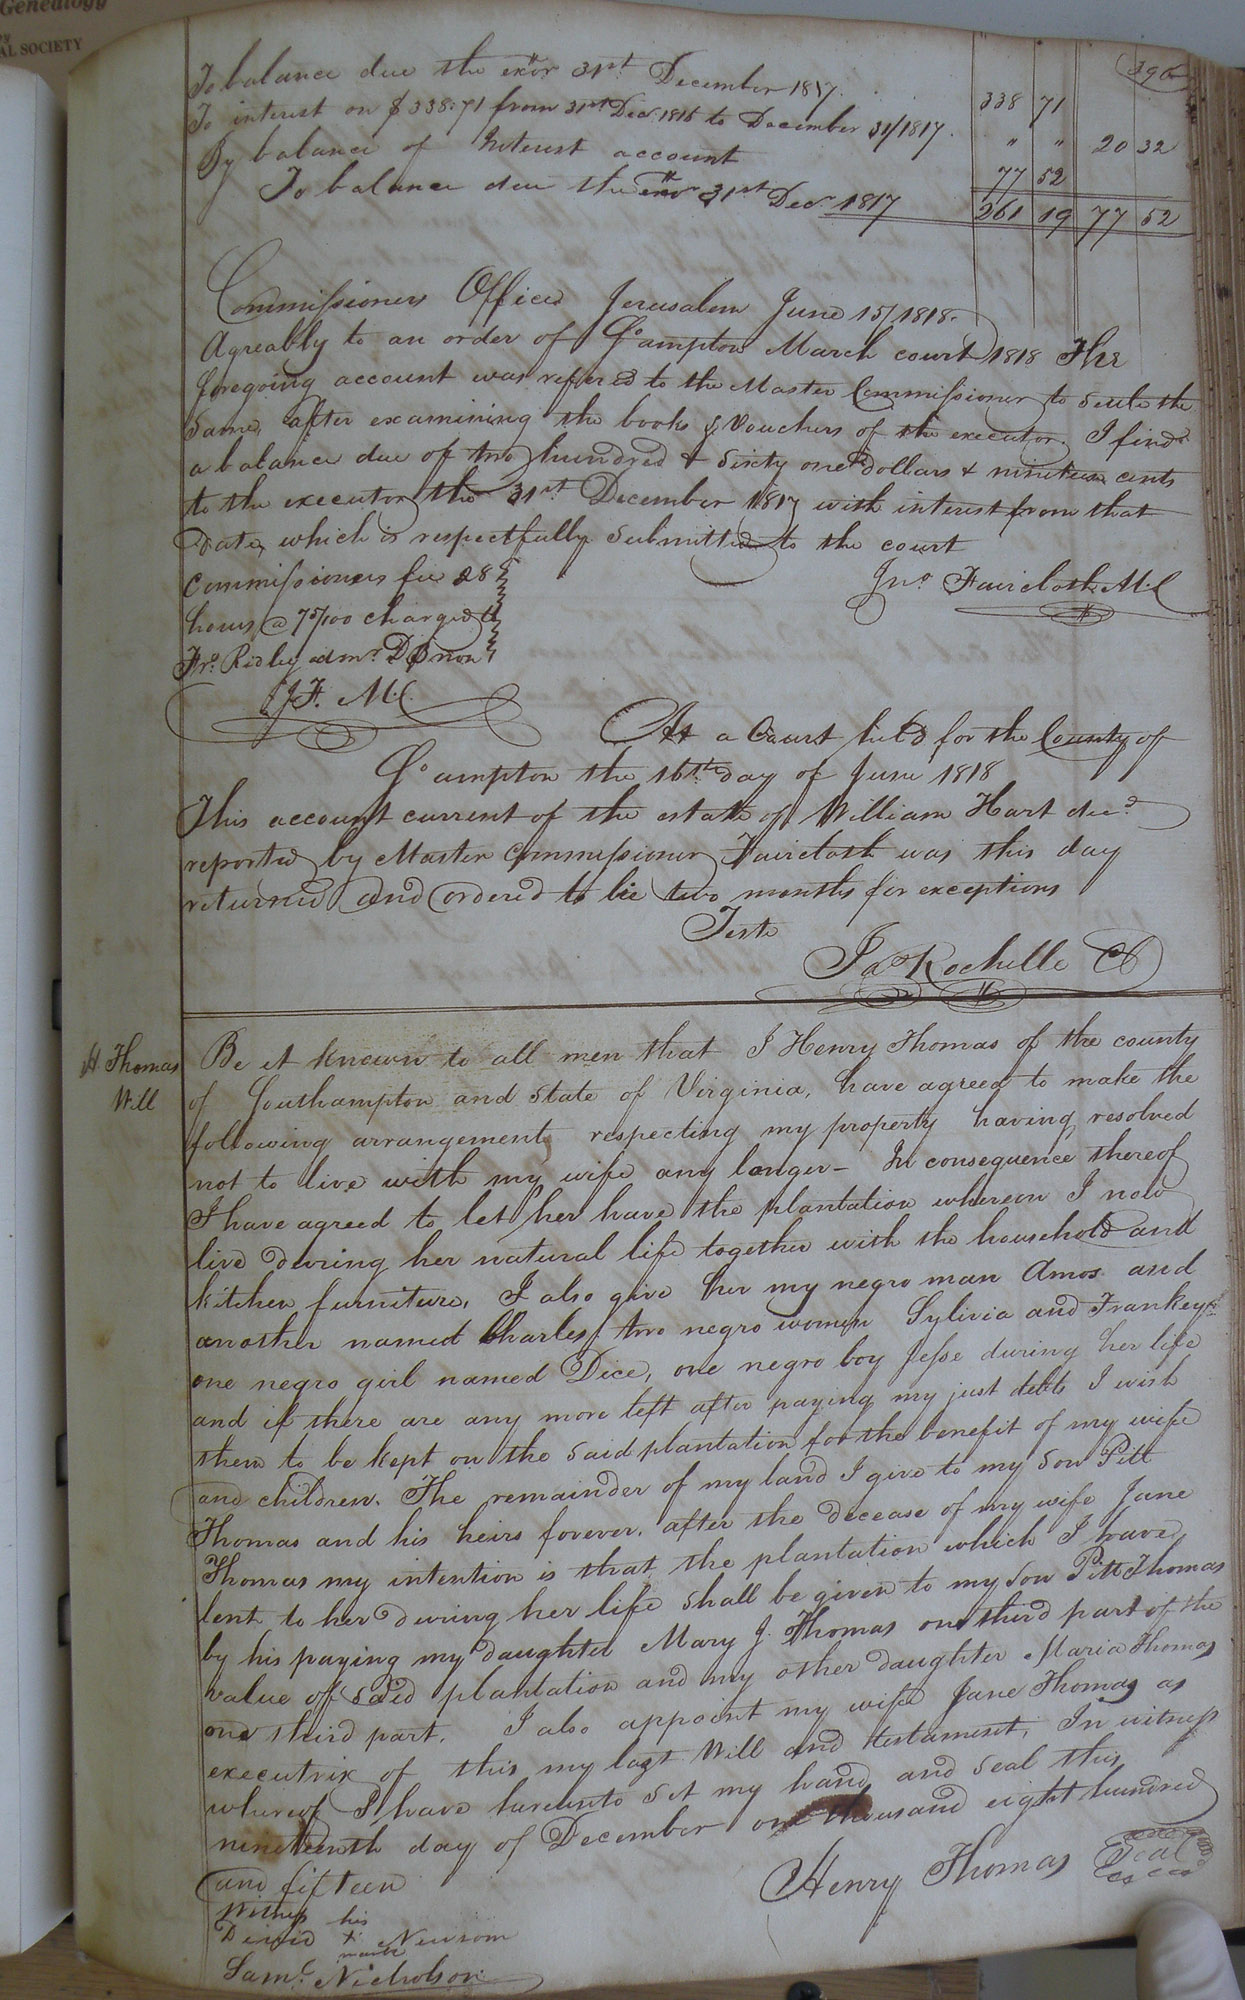 Genealogy
AL SOCIETY
To balance due the exor 31st December 1817. 338 71
To interest on $338:71 from 31st Dec. 1816 to December 31/1817. " " 20 32
By balance of Interest account 77 52
To balance due the exor 31st Decr 1817 261 19 77 52
Commissioners Office Jerusalem June 15/1818.
Agreably to an order of So ampton March court 1818 The
foregoing account was refered to the Master Commissioner to settle the
same, after examining the books & Vouchers of the executor. I find
a balance due of two hundred & sixty one dollars & nineteen cents
to the executor the 31st December 1817 with interest from that
date, which is respectfully submitted to the court
Commissioners fee 28
hours @ 75/100 charged
Jno Faircloth M.C
Frs. Ridley admr. D B non
J.F. M.C.
At a Court held for the County of
So ampton the 16th day of June 1818
This account current of the estate of William Hart decd
reported by Master Commissioner Faircloth was this day
returned and ordered to lie two months for exceptions
Teste
Jas Rochelle CC
H Thomas
Will
Be it known to all men that I Henry Thomas of the county
of Southampton and State of Virginia, have agreed to make the
following arrangements respecting my property having resolved
not to live with my wife any longer - In consequence thereof
I have agreed to let her have the plantation whereon I now
live during her natural life together with the household and
kitchen furniture, I also give her my negro man Amos and
another named Charles, two negro women Sylivia and Frankey
one negro girl named Dice, one negro boy Jesse during her life
and if there are any more left after paying my just debts I wish
them to be kept on the said plantation for the benefit of my wife
and children. The remainder of my land I give to my son Pitt
Thomas and his heirs forever. after the decease of my wife Jane
Thomas my intention is that the plantation which I have
lent to her during her life shall be given to my son Pitt Thomas
by his paying my daughter Mary J. Thomas one third part of the
value of said plantation and my other daughter Maria Thomas
one third part. I also appoint my wife Jane Thomas as
executrix of this my last Will and testament, In witness
whereof I have hereunto set my hand and seal this
nineteenth day of December one thousand eight hundred
and fifteen
Henry Thomas Seal
Witness his
David + Newsom
mark
Saml. Nicholson